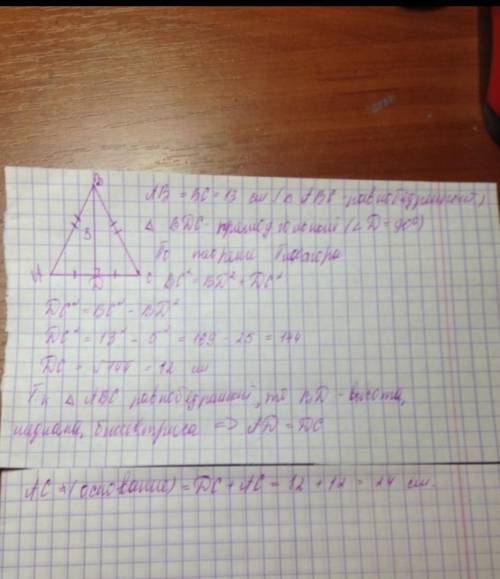 B
AB = BC = 13 см (△ ABC - равнобедренный)
△ BDC - прямоугольный (∠D = 90°)
По теореме Пифагора
5
A D C
BC² = BD² + DC²
DC² = BC² - BD²
DC² = 13² - 5² = 169 - 25 = 144
DC = √144 = 12 см
Тк △ ABC равнобедренный, то BD - высота,
медиана, биссектриса => AD = DC
AC (основание) = DC + AC = 12 + 12 = 24 см.